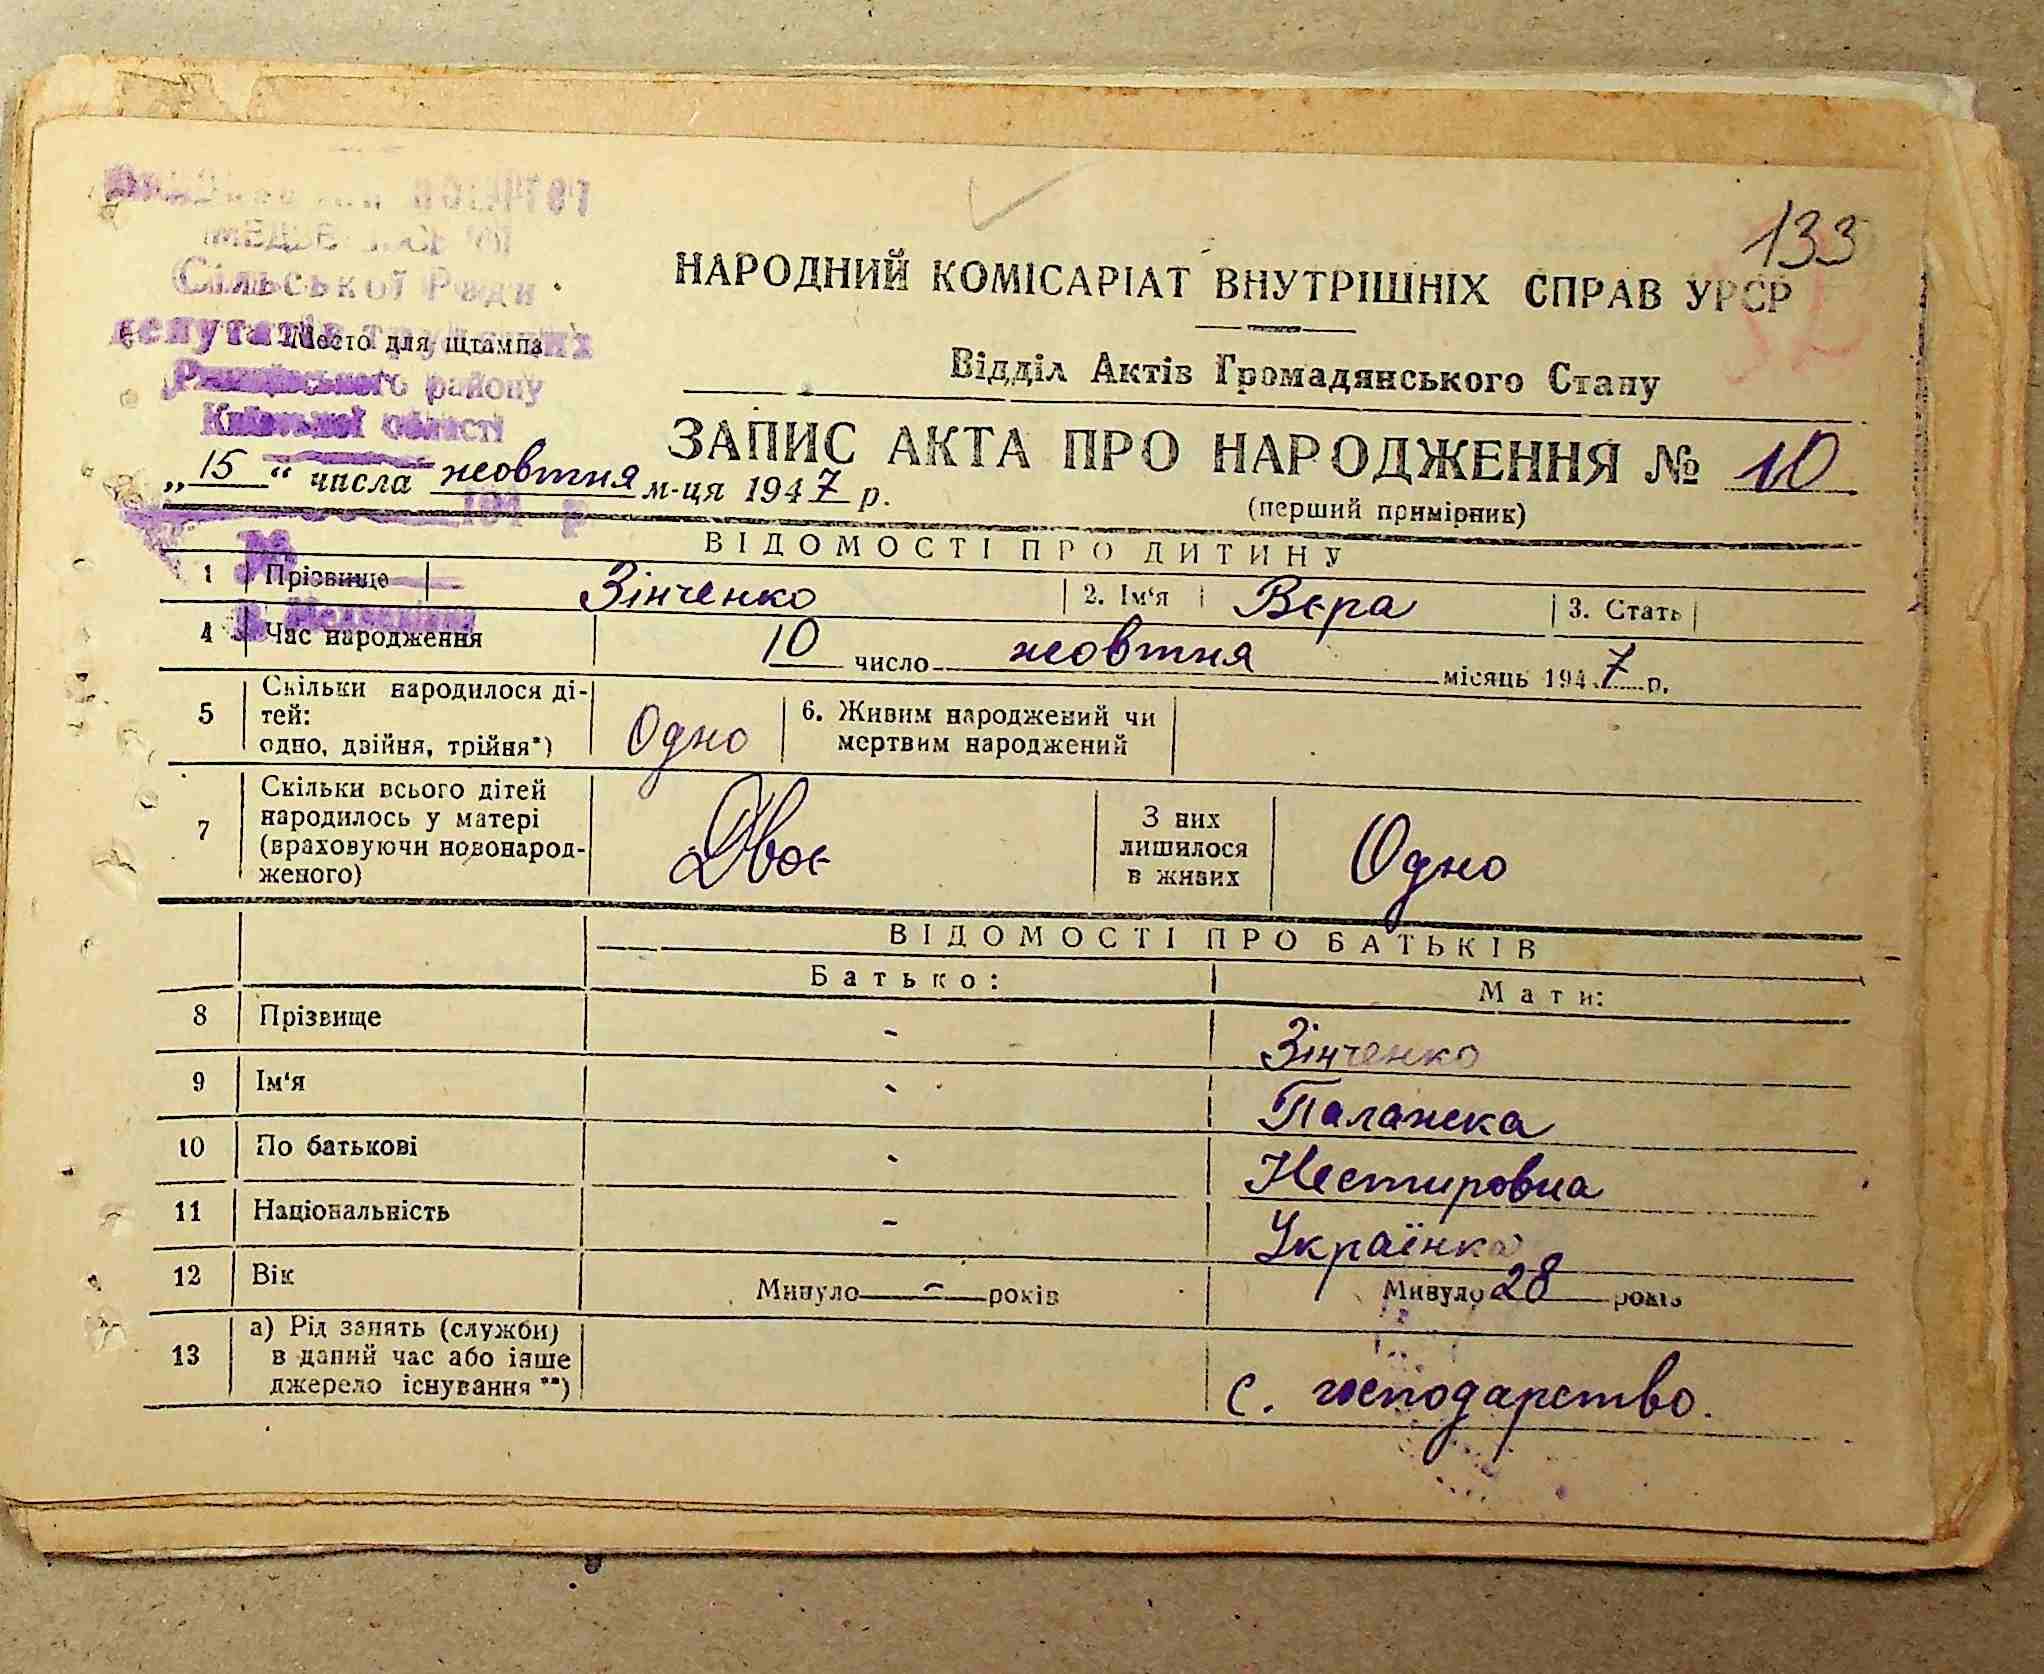 133
Сільської Ради
депутатів трудящих
Место для штампа
району
Київської області
НАРОДНИЙ КОМІСАРІАТ ВНУТРІШНІХ СПРАВ УРСР
Відділ Актів Громадянського Стану
ЗАПИС АКТА ПРО НАРОДЖЕННЯ № 10
„ 15 “ числа жовтня м-ця 1947 р.
(перший примірник)
194 р
ВІДОМОСТІ ПРО ДИТИНУ
1 Прізвище Зінченко 2. Ім‘я Вєра 3. Стать
4 Час народження 10 число жовтня місяць 1947 р.
5 Скільки народилося ді-
тей:
одно, двійня, трійня*) Одно 6. Живим народжений чи
мертвим народжений
7 Скільки всього дітей
народилось у матері
(враховуючи новонарод-
женого) Двоє З них
лишилося
в живих Одно
ВІДОМОСТІ ПРО БАТЬКІВ
Батько: Мати:
8 Прізвище - Зінченко
9 Ім‘я - Палажка
10 По батькові - Нестировна
11 Національність - Українка
12 Вік Минуло - років Минуло 28 років
13 а) Рід занять (служби)
в даний час або інше
джерело існування **) с. господарство.